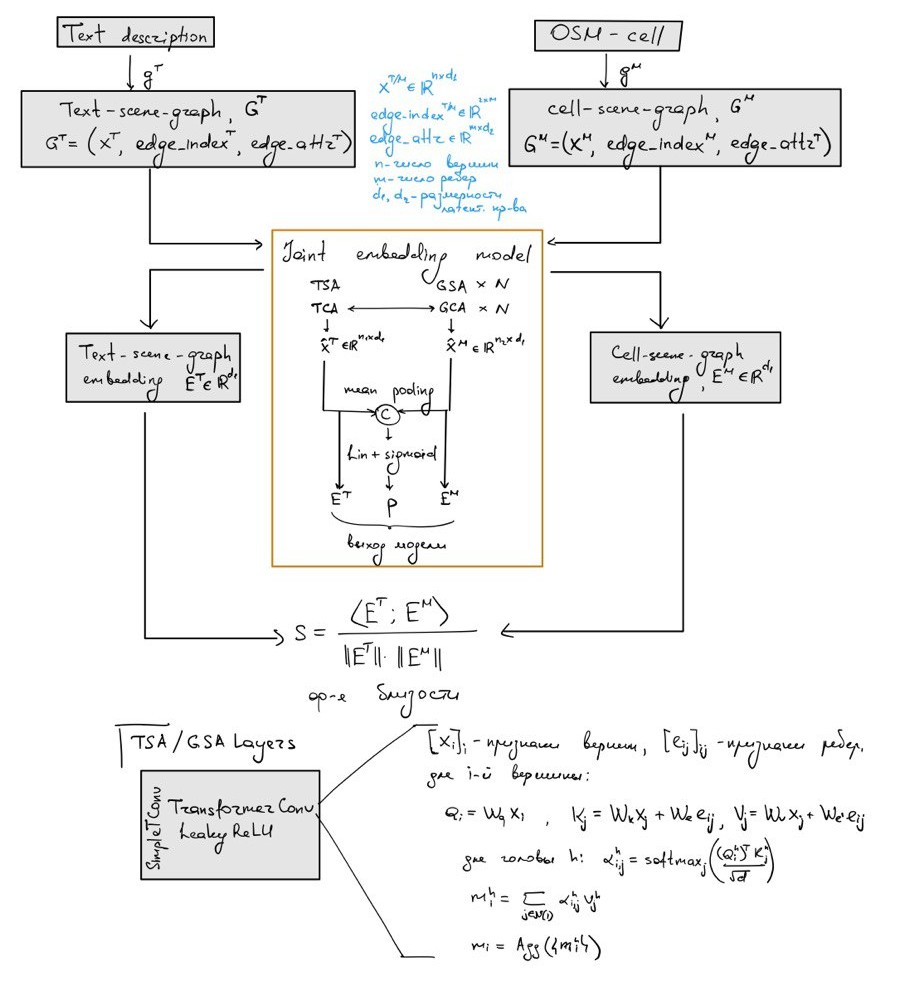 Text description
OSM - cell
g^T
g^M
Text-scene-graph, G^T
G^T = (X^T, edge_index^T, edge_attr^T)
X^{T/M} ∈ ℝ^{n×d₁}
edge_index^{T/M} ∈ ℝ^{2×M}
edge_attr ∈ ℝ^{m×d₂}
n - число вершин
m - число ребер
d₁, d₂ - размерности
латент. пр-ва
cell-scene-graph, G^M
G^M = (X^M, edge_index^M, edge_attr^T)
Joint embedding model
TSA GSA × N
TCA ⟷ GCA × N
X̂^T ∈ ℝ^{n₁×d₁} X̂^M ∈ ℝ^{n₂×d₁}
mean pooling
C
Lin + sigmoid
E^T P E^M
выход модели
Text-scene-graph
embedding E^T ∈ ℝ^{d₁}
Cell-scene-graph
embedding, E^M ∈ ℝ^{d₁}
S = ⟨E^T; E^M⟩ / ‖E^T‖·‖E^M‖
ф-я близости
TSA / GSA Layers
SimpleTConv
Transformer Conv
Leaky ReLU
[x_i]_i - признаки вершин, [e_ij]_ij - признаки ребер,
для i-й вершины:
Q_i = W_q x_i , K_j = W_k x_j + W_e e_ij, V_j = W_v x_j + W_e' e_ij
для головы h: α_ij^h = softmax_j ((Q_i^h)^T K_j^h / √d)
m_i^h = Σ_{j∈N(i)} α_ij^h V_j^h
m_i = Agg({m_i^h})